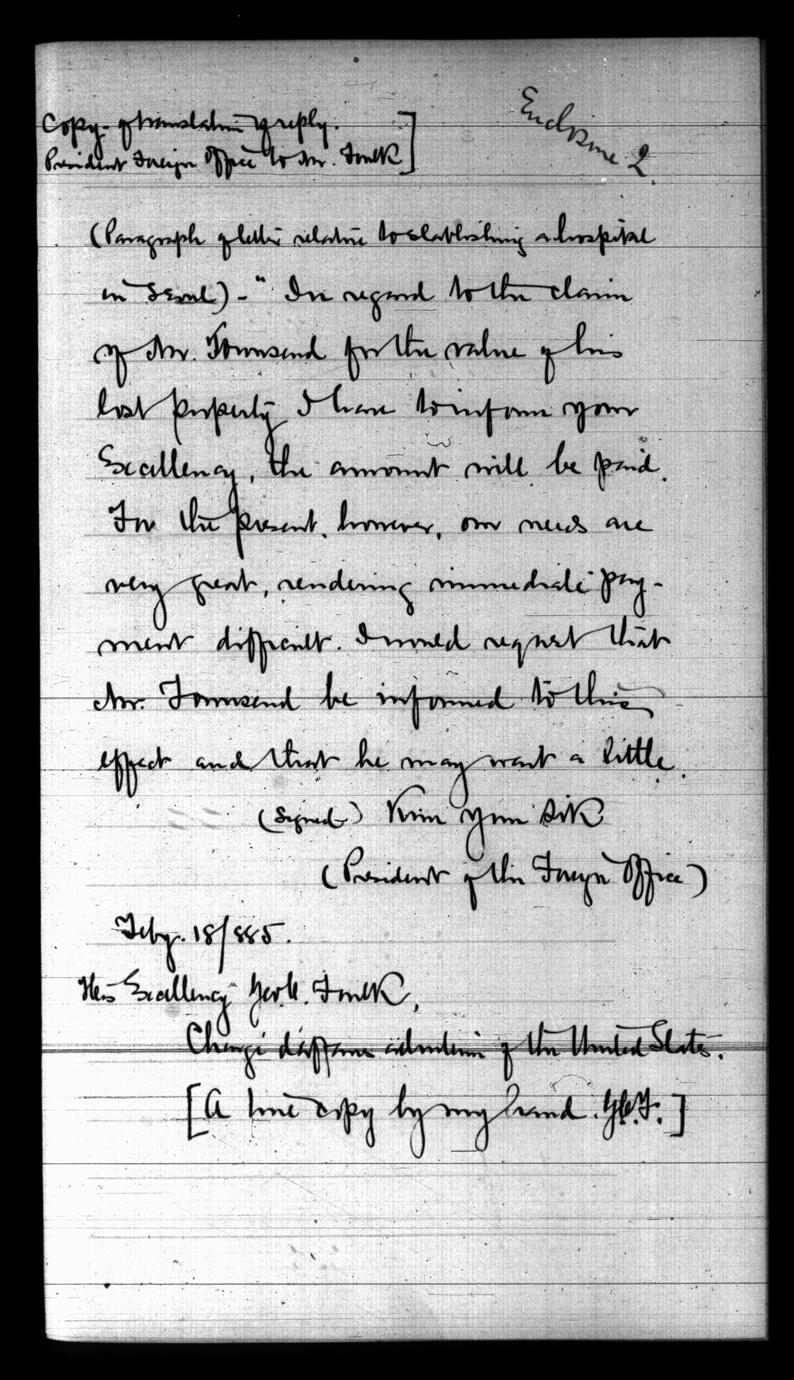 Enclosure 2.
Copy of translation of reply.
President Foreign Office to Mr. Foulk]
(Paragraph of letter relative to establishing a hospital
in Seoul) - " In regard to the claim
of Mr. Townsend for the value of his
lost property I have to inform your
Excellency, the amount will be paid.
For the present, however, our needs are
very great, rendering immediate pay-
ment difficult. I would request that
Mr. Townsend be informed to this
effect and that he may wait a little.
(Signed) Kim Yun Sik
(President of the Foreign Office)
Feby. 18/885.
His Excellency Geo. C. Foulk,
Chargé d'affaires ad interim of the United States.
[A true copy by my hand. G.C.F.]